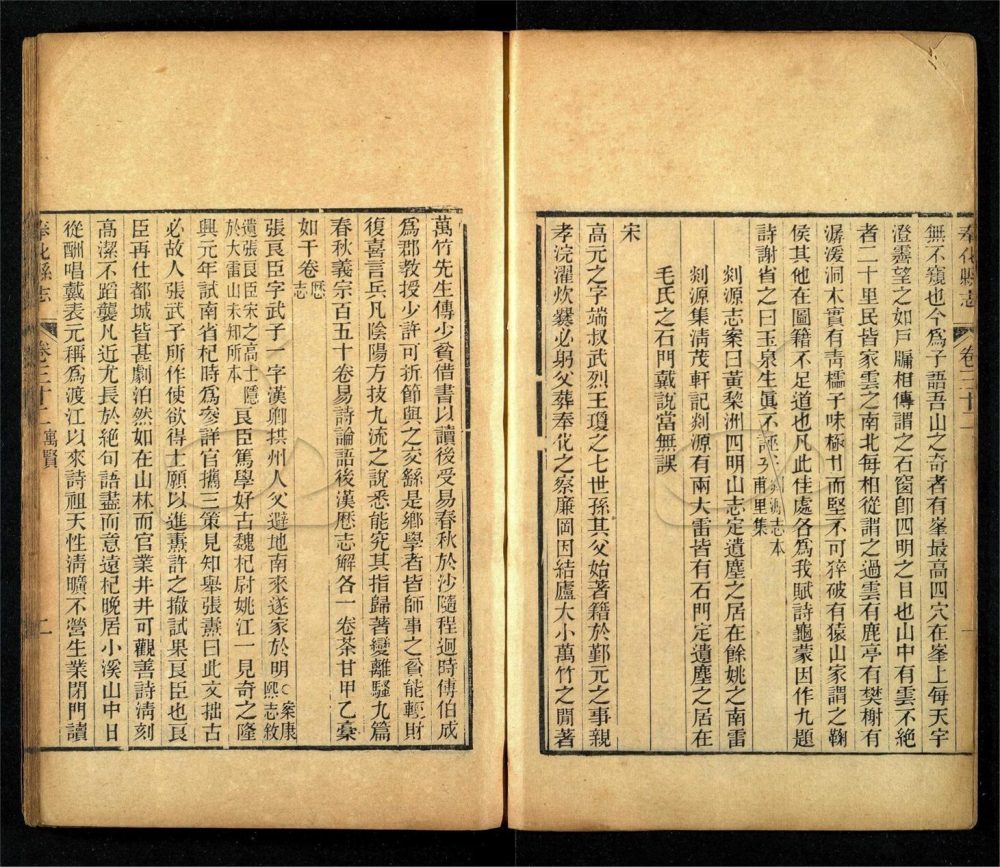 奉化縣志
卷三十二
一
無不窺也今爲子語吾山之奇者有峯最高四穴在峯上每天宇
澄霽望之如戸牖相傳謂之石窗卽四明之目也山中有雲不絕
者二十里民皆家雲之南北每相從謂之過雲有鹿亭有樊榭有
潺湲洞木實有靑櫺子味極甘而堅不可猝破有猿山家謂之鞠
侯其他在圖籍不足道也凡此佳處各爲我賦詩龜蒙因作九題
詩謝省之曰玉泉生眞不誣 剡源志本
甫里集
剡源志案曰黃黎洲四明山志定遺塵之居在餘姚之南雷
剡源集淸茂軒記剡源有兩大雷皆有石門定遺塵之居在
毛氏之石門戴說當無誤
宋
高元之字端叔武烈王瓊之七世孫其父始著籍於鄞元之事親
孝浣濯炊爨必躬父葬奉化之察廉岡因結廬大小萬竹之閒著
萬竹先生傳少貧借書以讀後受易春秋於沙隨程迥時傅伯成
爲郡敎授少許可折節與之交繇是鄉學者皆師事之貧能輕財
復喜言兵凡陰陽方技九流之說悉能究其指歸著變離騷九篇
春秋義宗百五十卷易詩論語後漢歷志解各一卷荼甘甲乙稾
如干卷 歷
志
張良臣字武子一字漢卿拱州人父避地南來遂家於明 案康
熙志敘
遺張良臣宋之高士隱
於大雷山未知所本
良臣篤學好古魏杞尉姚江一見奇之隆
興元年試南省杞時爲參詳官攜三策見知舉張燾曰此文拙古
必故人張武子所作使欲得士願以進燾許之撤試果良臣也良
臣再仕都城皆甚劇泊然如在山林而官業井井可觀善詩淸刻
高潔不蹈襲凡近尤長於絕句語盡而意遠杞晚居小溪山中日
從酬唱戴表元稱爲渡江以來詩祖天性淸曠不營生業閉門讀
奉化縣志
卷三十二 寓賢
二